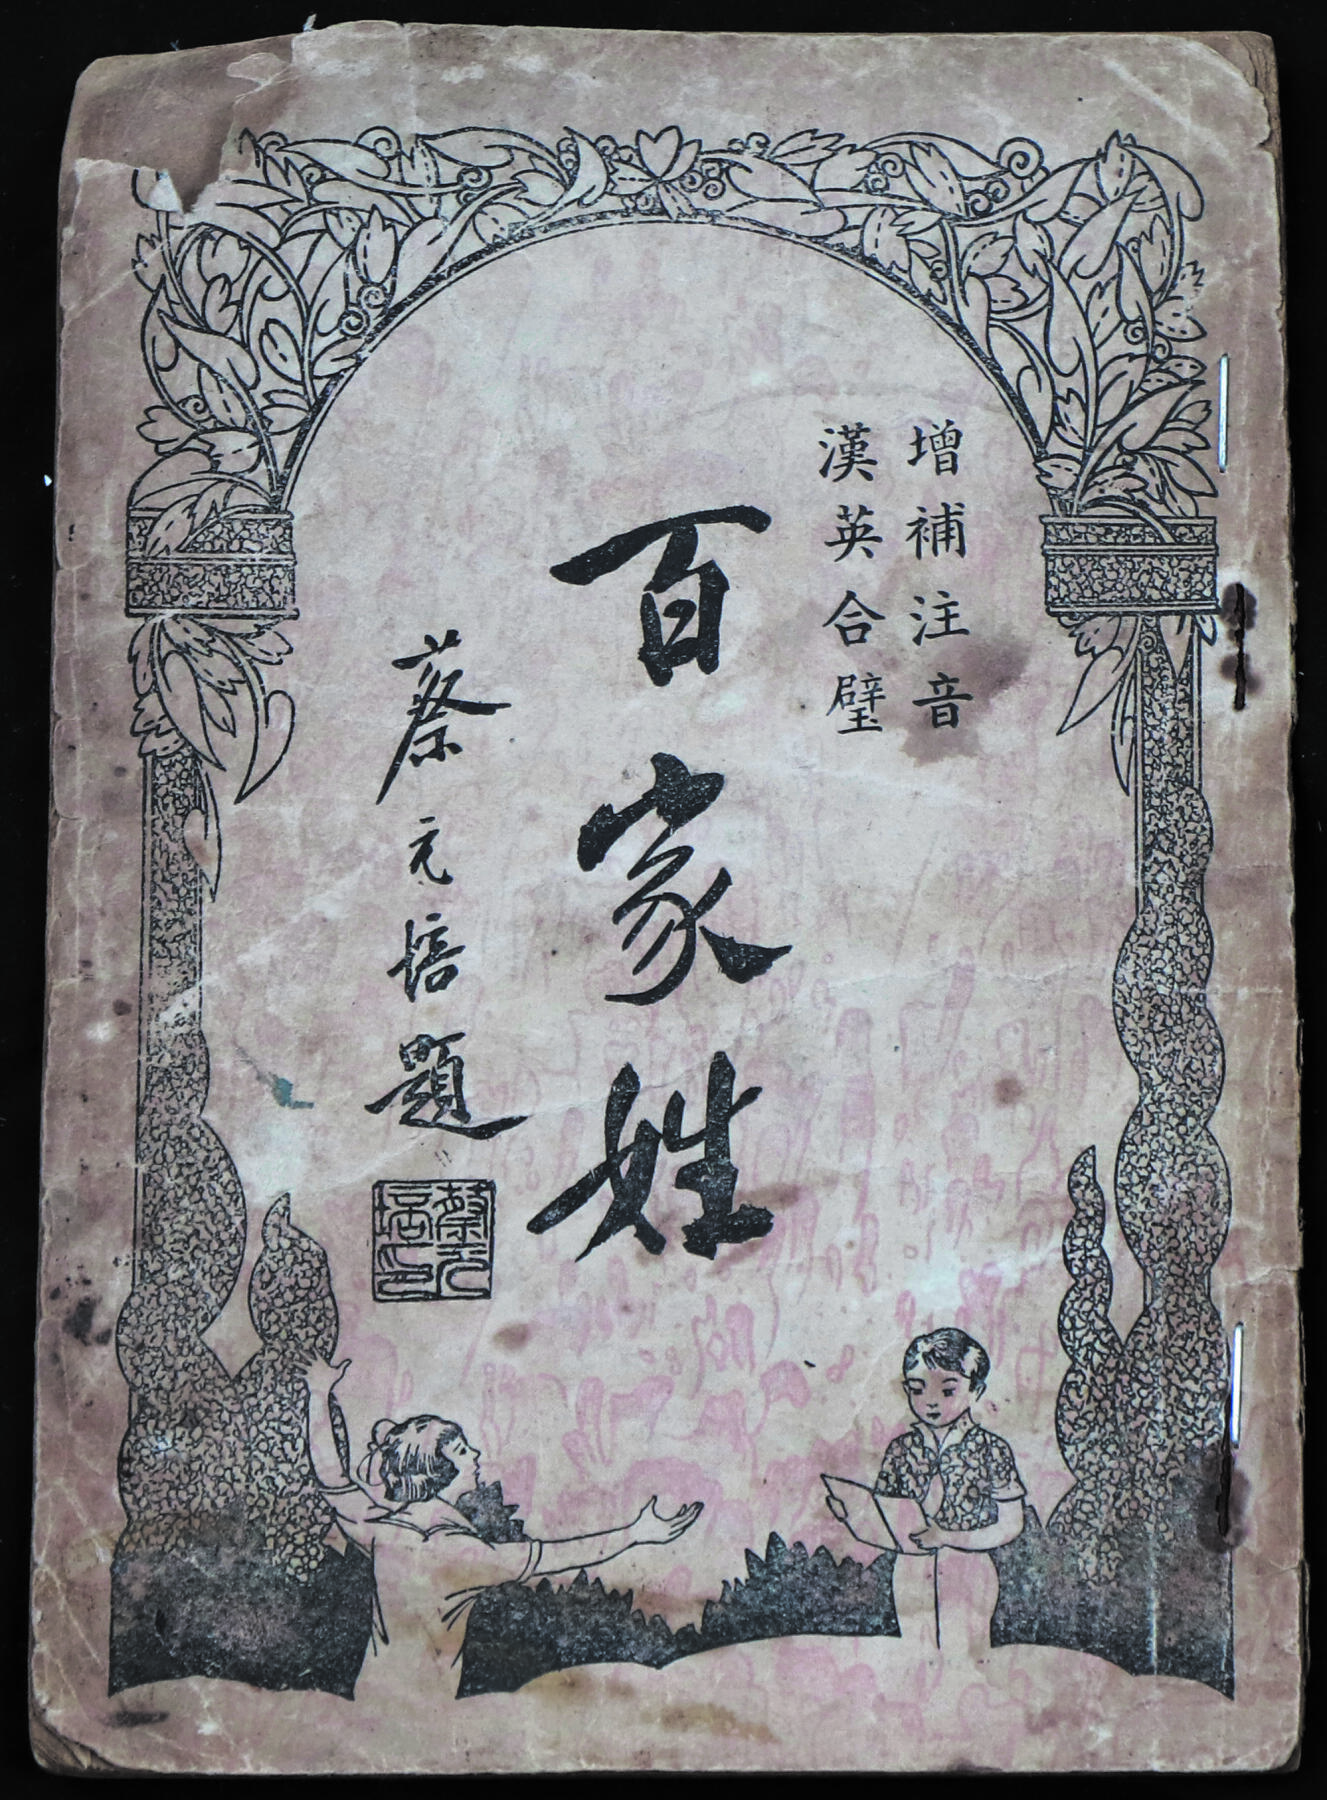 增補注音
漢英合璧
百家姓
蔡元培題
蔡元
培印